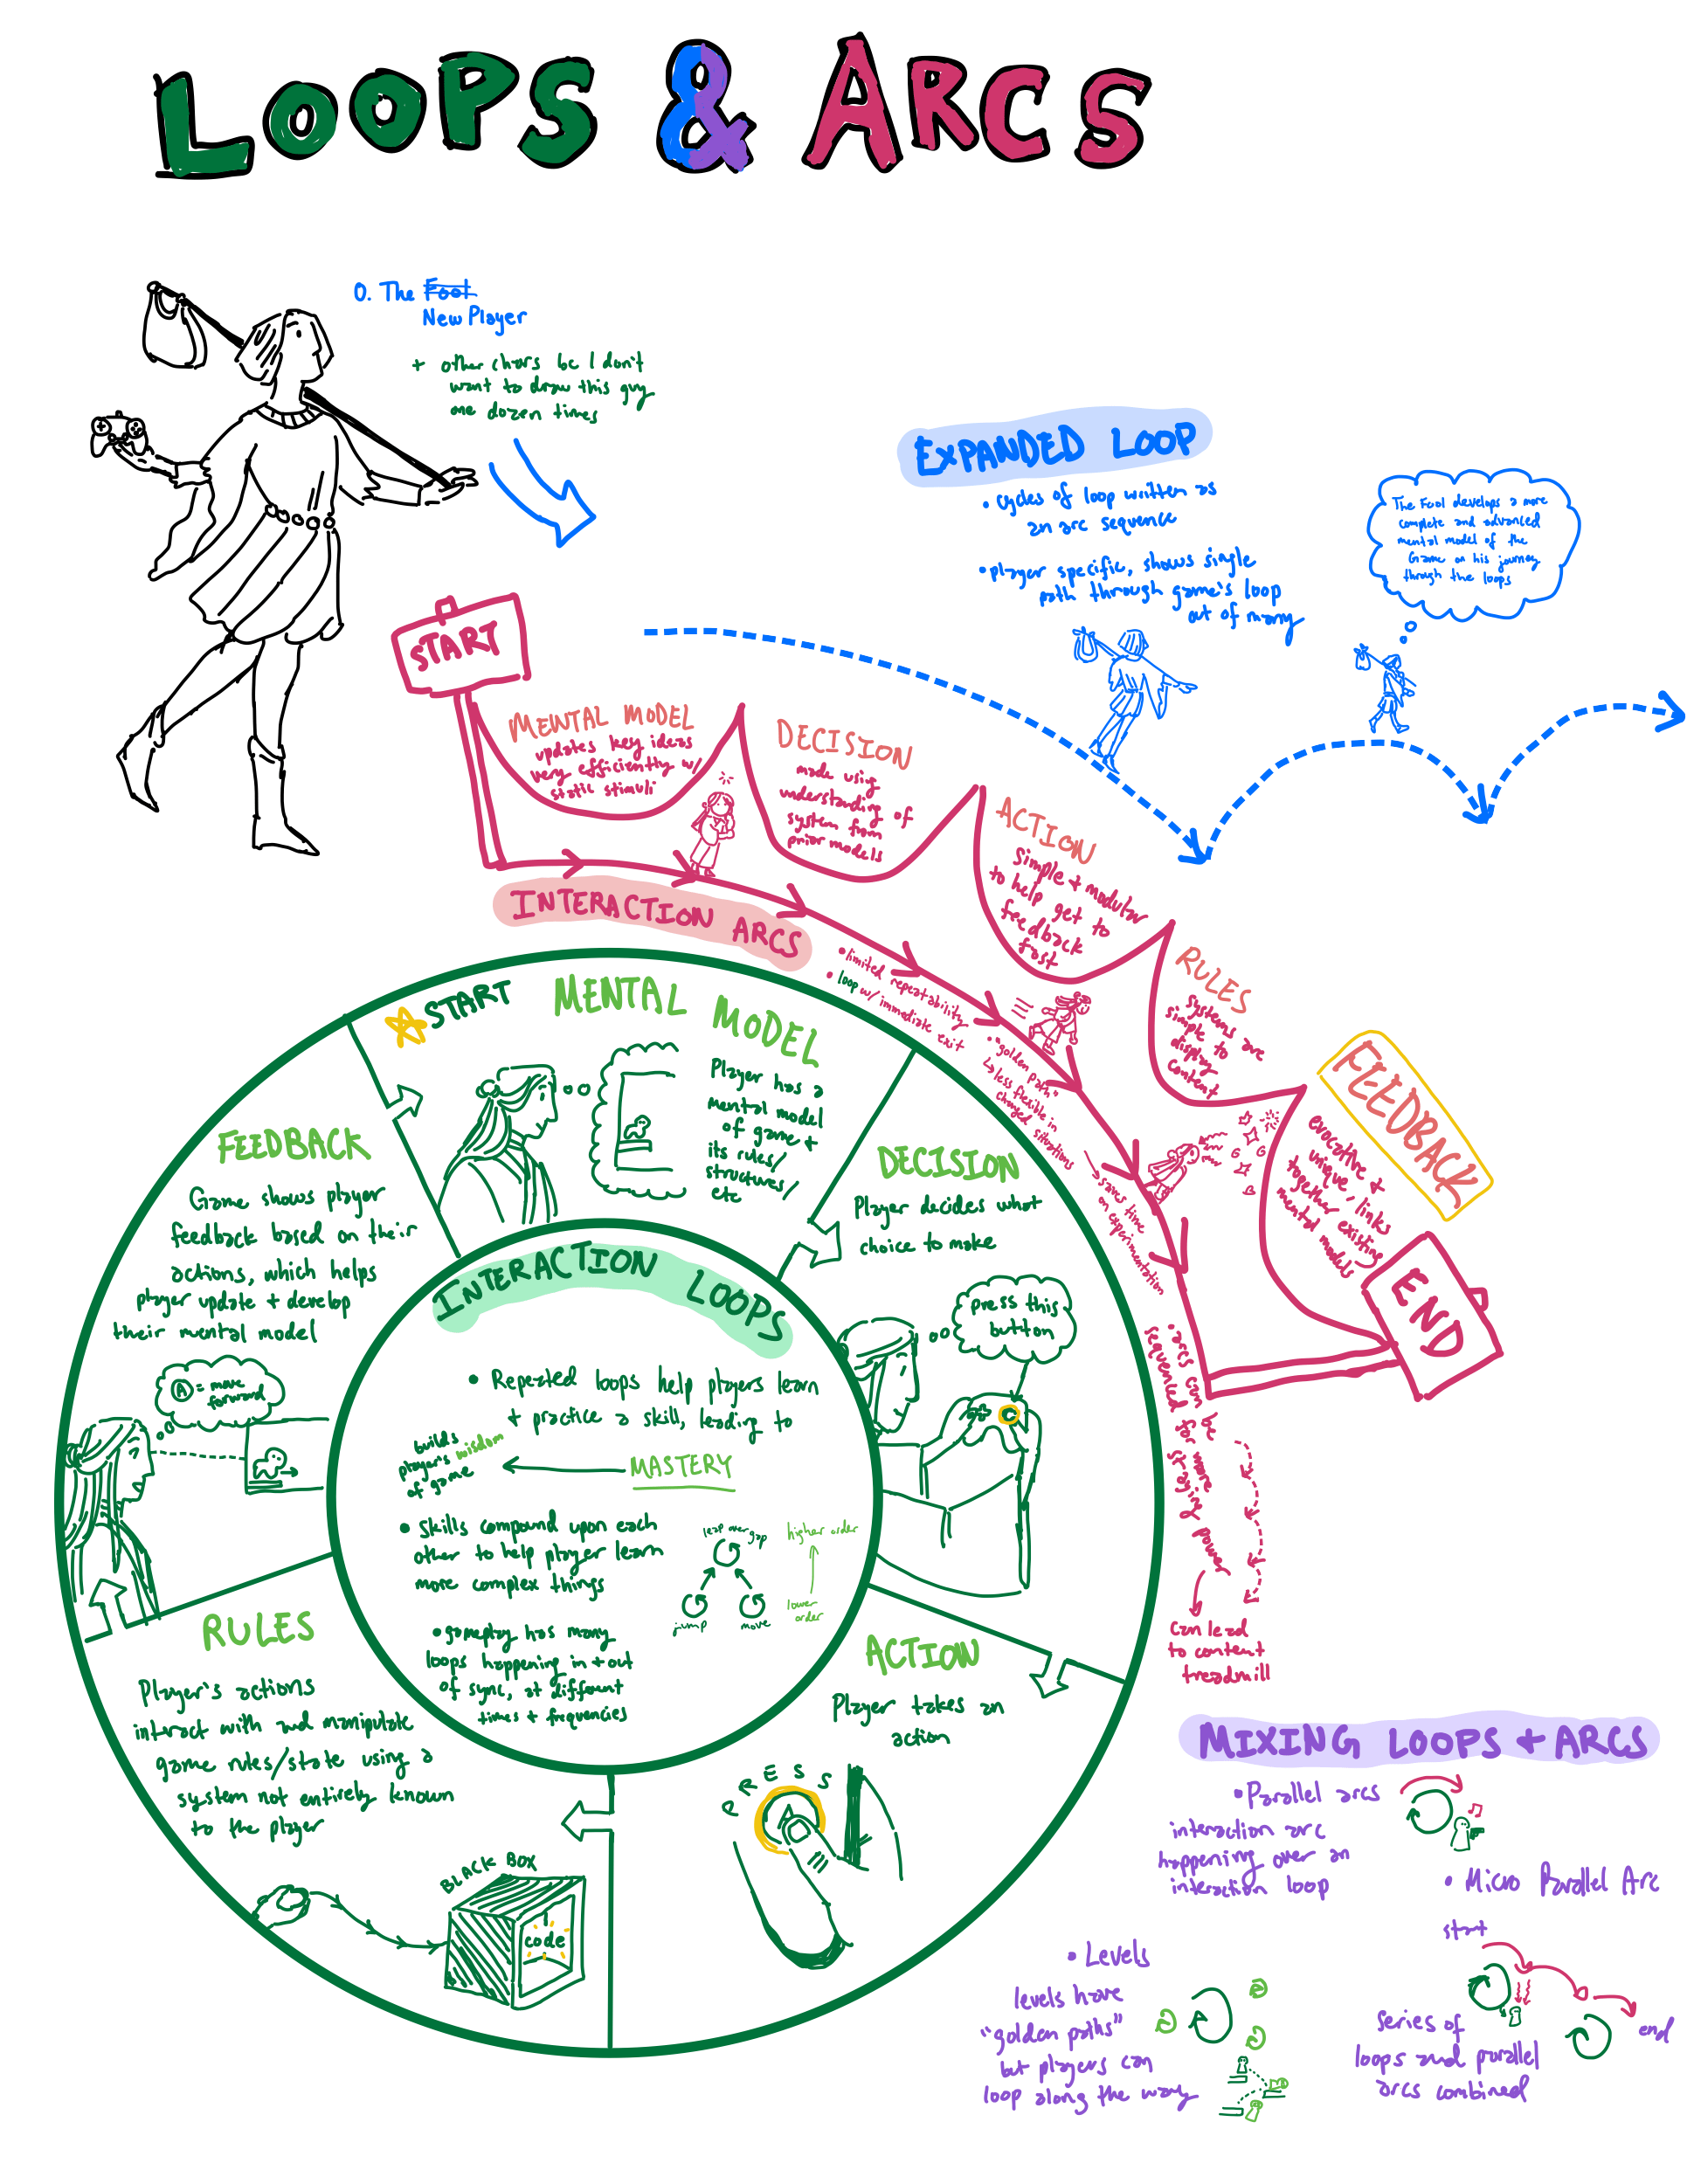 LOOPS & ARCS
0. The Fool
New Player
+ other chars bc I don't
want to draw this guy
one dozen times
EXPANDED LOOP
• cycles of loop written as
an arc sequence
• player specific, shows single
path through game's loop
out of many
The Fool develops a more
complete and advanced
mental model of the
Game on his journey
through the loops
START
MENTAL MODEL
updates key ideas
very efficiently w/
static stimuli
DECISION
made using
understanding of
system from
prior models
ACTION
Simple + modular
to help get to
feedback
fast
RULES
systems are
simple to
display
content
FEEDBACK
evocative +
unique, links
together existing
mental models
END
INTERACTION ARCS
• limited repeatability
• loop w/ immediate exit
• "golden path"
↳ less flexible in
changed situations
→ saves time
on experimentation
• arcs can be
sequenced for more
staying power
can lead
to content
treadmill
START
MENTAL MODEL
Player has a
mental model
of game +
its rules/
structures/
etc
DECISION
Player decides what
choice to make
press this
button
ACTION
Player takes an
action
PRESS
A
RULES
Player's actions
interact with and manipulate
game rules/state using a
system not entirely known
to the player
BLACK BOX
code
FEEDBACK
Game shows player
feedback based on their
actions, which helps
player update + develop
their mental model
A = move
forward
INTERACTION LOOPS
• Repeated loops help players learn
+ practice a skill, leading to
MASTERY
builds
player's wisdom
of game
• Skills compound upon each
other to help player learn
more complex things
leap over gap
jump
move
higher order
lower
order
• gameplay has many
loops happening in + out
of sync, at different
times + frequencies
MIXING LOOPS + ARCS
• Parallel arcs
interaction arc
happening over an
interaction loop
• Micro Parallel Arc
start
end
series of
loops and parallel
arcs combined
• Levels
levels have
"golden paths"
but players can
loop along the way